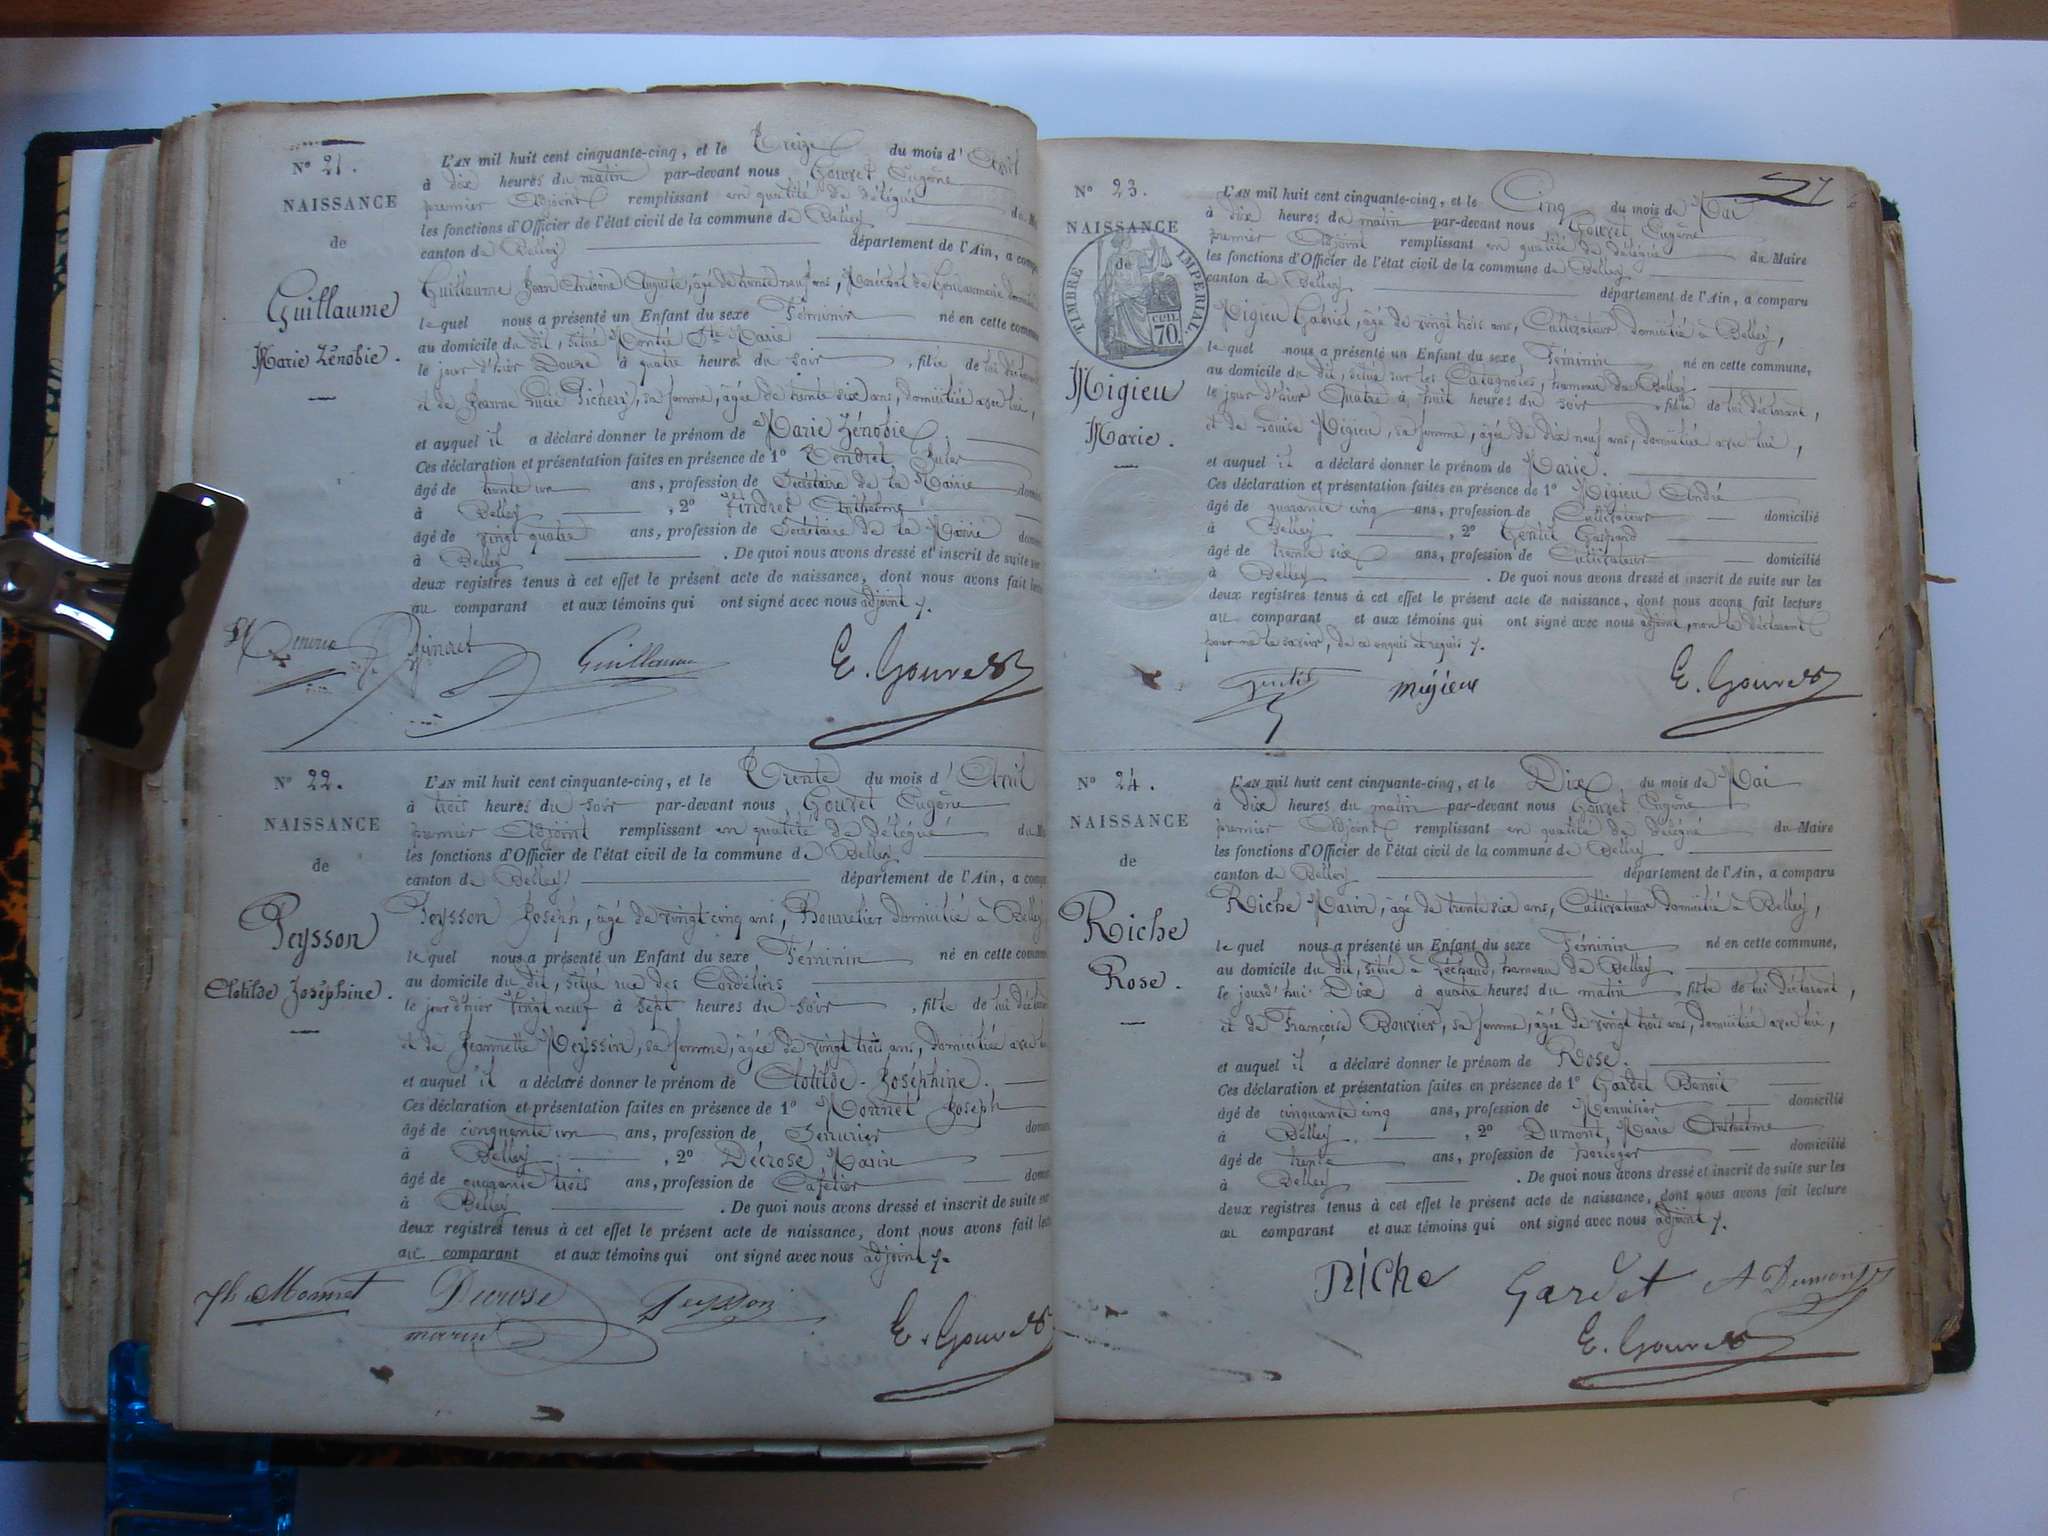 N° 21.
NAISSANCE
de
Guillaume
Marie Zénobie.
L'AN mil huit cent cinquante-cinq, et le Treize du mois d'Avril
à dix heures du matin par-devant nous Gouvret Eugène
premier Adjoint remplissant en qualité de délégué du
les fonctions d'Officier de l'état civil de la commune de Belley
canton de Belley département de l'Ain, a
Guillaume Jean Antoine Auguste, âgé de trente neuf ans, Maréchal de Gendarmerie
lequel nous a présenté un Enfant du sexe Féminin né en cette
au domicile du dit, situé Montée Ste Marie
le jour d'hier Douze à quatre heures du soir, fille de lui
et de Jeanne Lucie Pichery, sa femme, âgée de trente six ans, domiciliée avec lui,
et auquel il a déclaré donner le prénom de Marie Zénobie
Ces déclaration et présentation faites en présence de 1° Tendret Jules
âgé de trente un ans, profession de Secrétaire de la Mairie
à Belley, 2° Tindret Anthelme
âgé de vingt quatre ans, profession de Secrétaire de la Mairie
à Belley. De quoi nous avons dressé et inscrit de suite sur
deux registres tenus à cet effet le présent acte de naissance, dont nous avons fait
au comparant et aux témoins qui ont signé avec nous adjoint
Guillaume E. Gouvret
N° 22.
NAISSANCE
de
Peysson
Clotilde Joséphine.
L'AN mil huit cent cinquante-cinq, et le Trente du mois d'Avril
à trois heures du soir par-devant nous Gouvret Eugène
premier Adjoint remplissant en qualité de délégué du
les fonctions d'Officier de l'état civil de la commune de Belley
canton de Belley département de l'Ain, a
Peysson Joseph, âgé de vingt cinq ans, Bourrelier domicilié à Belley
lequel nous a présenté un Enfant du sexe Féminin né en cette
au domicile du dit, situé rue des Cordeliers
le jour d'hier vingt neuf à sept heures du soir, fille de lui
et de Jeannette Meyssin, sa femme, âgée de vingt trois ans, domiciliée avec
et auquel il a déclaré donner le prénom de Clotilde-Joséphine.
Ces déclaration et présentation faites en présence de 1° Monnet Joseph
âgé de cinquante un ans, profession de Serrurier
à Belley, 2° Decrose Marin
âgé de cinquante trois ans, profession de Cafetier
à Belley. De quoi nous avons dressé et inscrit de suite sur
deux registres tenus à cet effet le présent acte de naissance, dont nous avons fait
au comparant et aux témoins qui ont signé avec nous adjoint
Jh Monnet Decrose Peysson
marin E. Gouvret
27
N° 23.
NAISSANCE
de
TIMBRE IMPÉRIAL.
CEN.
70.
Migieu
Marie.
L'AN mil huit cent cinquante-cinq, et le Cinq du mois de Mai
à dix heures du matin par-devant nous Gouvret Eugène
premier Adjoint remplissant en qualité de délégué du Maire
les fonctions d'Officier de l'état civil de la commune de Belley
canton de Belley département de l'Ain, a comparu
Migieu Gabriel, âgé de vingt trois ans, Cultivateur domicilié à Belley,
lequel nous a présenté un Enfant du sexe Féminin né en cette commune,
au domicile du dit, situé sur les Catagnoles, hameau de Belley
le jour d'hier Quatre à huit heures du soir, fille de lui déclarant,
et de Louise Migieu, sa femme, âgée de dix neuf ans, domiciliée avec lui,
et auquel il a déclaré donner le prénom de Marie.
Ces déclaration et présentation faites en présence de 1° Migieu André
âgé de quarante cinq ans, profession de Cultivateur domicilié
à Belley, 2° Gentil Gaspard
âgé de trente six ans, profession de Cultivateur domicilié
à Belley. De quoi nous avons dressé et inscrit de suite sur les
deux registres tenus à cet effet le présent acte de naissance, dont nous avons fait lecture
au comparant et aux témoins qui ont signé avec nous adjoint, non le déclarant
pour ne le savoir, de ce enquis et requis
Gentil Migieux E. Gouvret
N° 24.
NAISSANCE
de
Riche
Rose.
L'AN mil huit cent cinquante-cinq, et le Dix du mois de Mai
à dix heures du matin par-devant nous Gouvret Eugène
premier Adjoint remplissant en qualité de délégué du Maire
les fonctions d'Officier de l'état civil de la commune de Belley
canton de Belley département de l'Ain, a comparu
Riche Marin, âgé de trente six ans, Cultivateur domicilié à Belley,
lequel nous a présenté un Enfant du sexe Féminin né en cette commune,
au domicile du dit, situé à Lechaud, hameau de Belley
le jourd'hui Dix à quatre heures du matin, fille de lui déclarant,
et de Françoise Bouvier, sa femme, âgée de vingt trois ans, domiciliée avec lui,
et auquel il a déclaré donner le prénom de Rose.
Ces déclaration et présentation faites en présence de 1° Gardet Benoit
âgé de cinquante cinq ans, profession de Menuisier domicilié
à Belley, 2° Dumont, Marie Anthelme
âgé de trente ans, profession de horloger domicilié
à Belley. De quoi nous avons dressé et inscrit de suite sur les
deux registres tenus à cet effet le présent acte de naissance, dont nous avons fait lecture
au comparant et aux témoins qui ont signé avec nous adjoint
Riche Gardet A Dumont
E. Gouvret